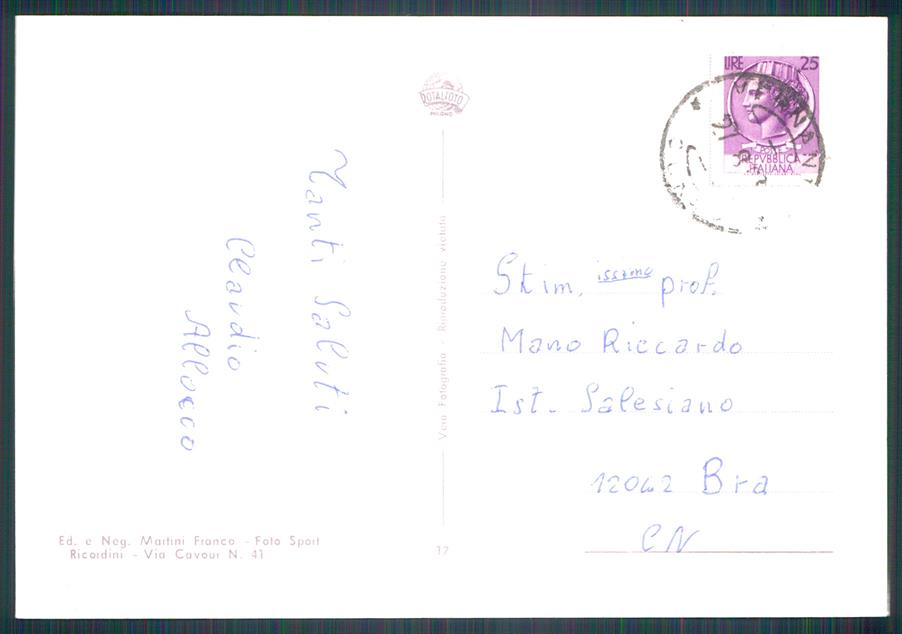 ROTALFOTO
MILANO
LIRE 25
POSTE
REPVBBLICA
ITALIANA
VERNAN
Tanti Saluti
Claudio
Allocco
Vera Fotografia - Riproduzione vietata
Stim. issimo prof.
Mano Riccardo
Ist. Salesiano
12042 Bra
CN
Ed. e Neg. Martini Franco - Foto Sport
Ricordini - Via Cavour N. 41
17